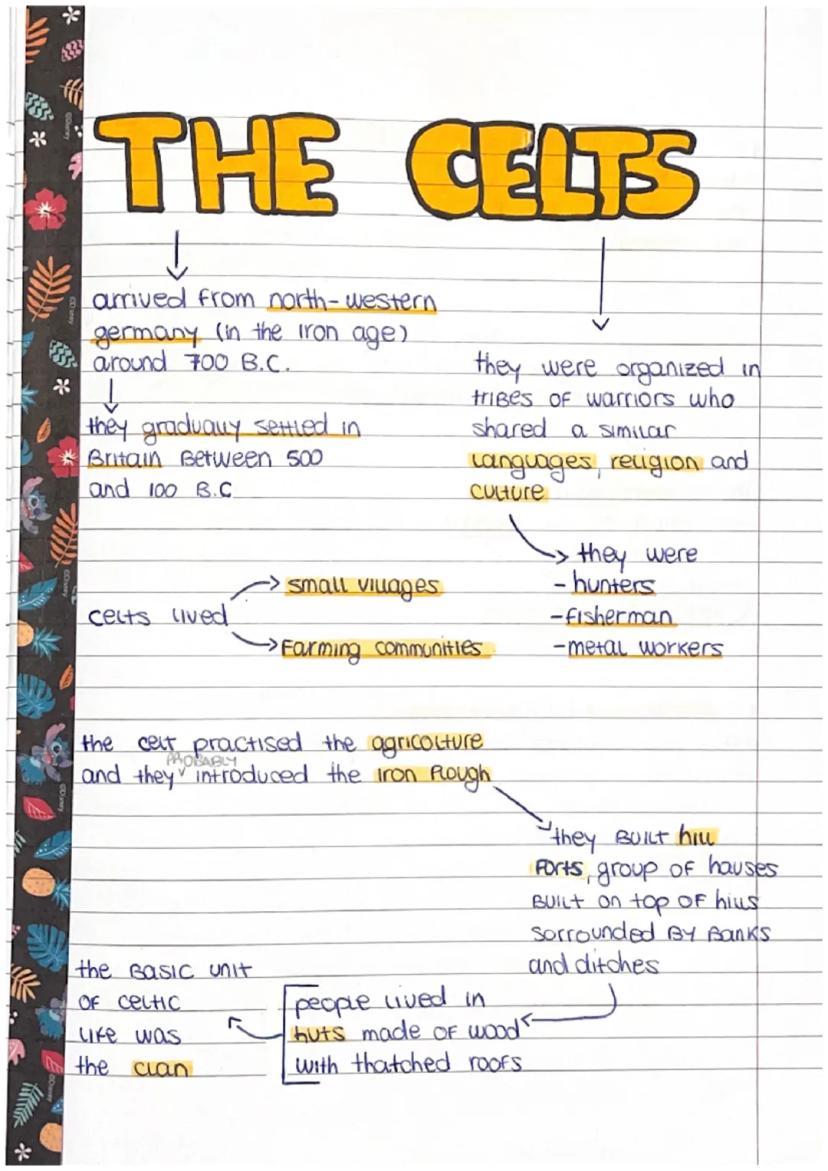 THE CELTS
arrived from north-western
germany (in the iron age)
around 700 B.C.
they gradually settled in
Britain Between 500
and 100 B.C
they were organized in
tribes of warriors who
shared a similar
languages, religion and
culture
they were
- hunters
- fisherman
- metal workers
celts lived
small villages
Farming communities
the celt practised the agricolture
PROBABLY
and they introduced the iron plough
they BUILT hill
forts, group of hauses
BUILT on top of hills
sorrounded BY BANKS
and ditches
people lived in
huts made of wood
with thatched roofs
the BASIC UNIT
OF celtic
life was
the clan
©Disney
©Disney
©Disney
©Disney
©Disney
©Disney